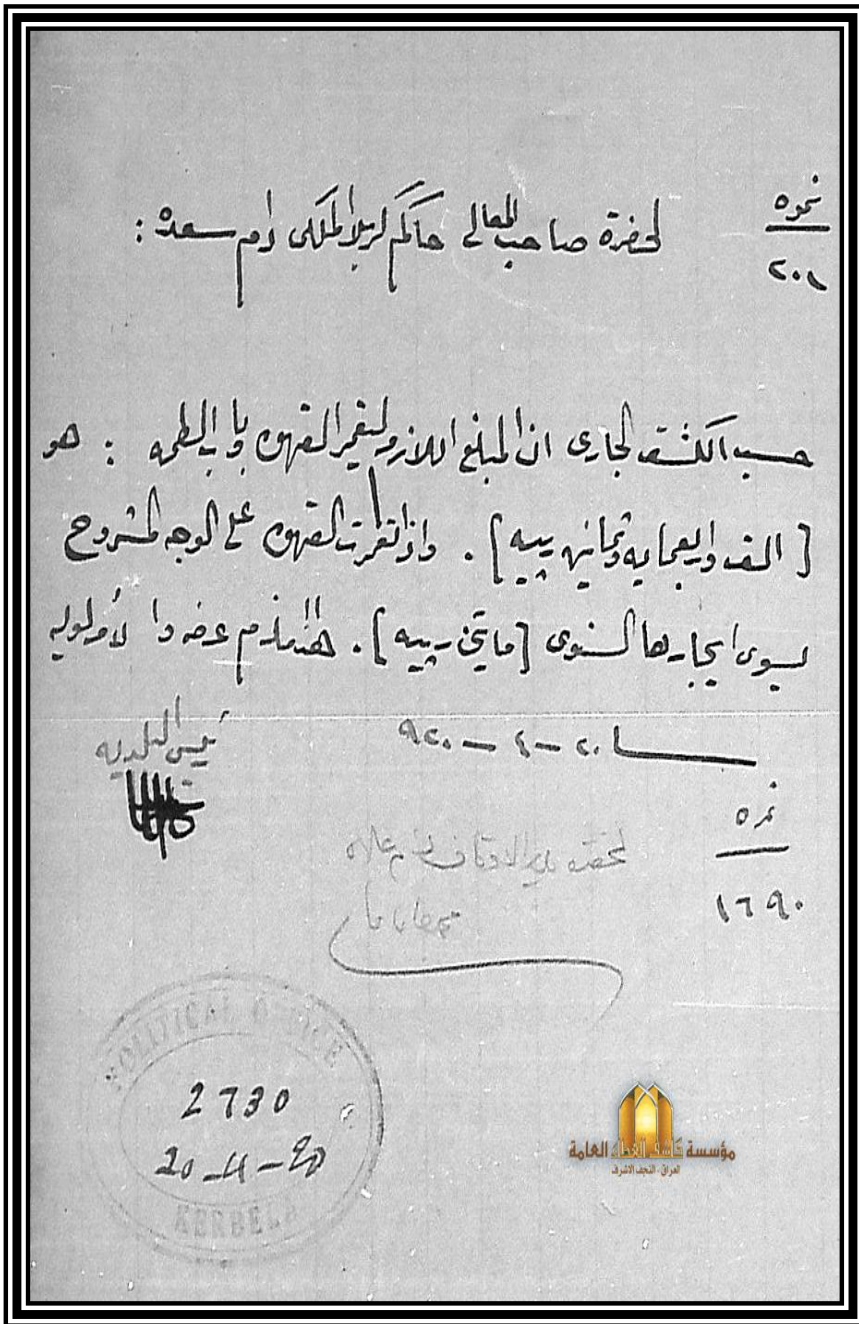 نمره
٢٠١
لحضرة صاحب المعالي حاكم كربلا الملكي دام سعده :
حسب الكشف الجاري ان المبلغ اللازم لتعمير القهوه وباب الطمه : هو
[ الف واربعمايه وثمانين ربيه ] . واذا تعمرت القهوه على الوجه المشروح
يسوى ايجارها السنوى [ مايتين ربيه ] . هذا ما لزم عرضه والامر لوليه
٢٠ - ٤ - ٩٢٠
رئيس البلديه
نمره
١٦٩٠
لحضرة مدير الاوقاف
POLITICAL OFFICE
2730
20-4-20
KERBELA
مؤسسة كاشف الغطاء العامة
العراق - النجف الاشرف